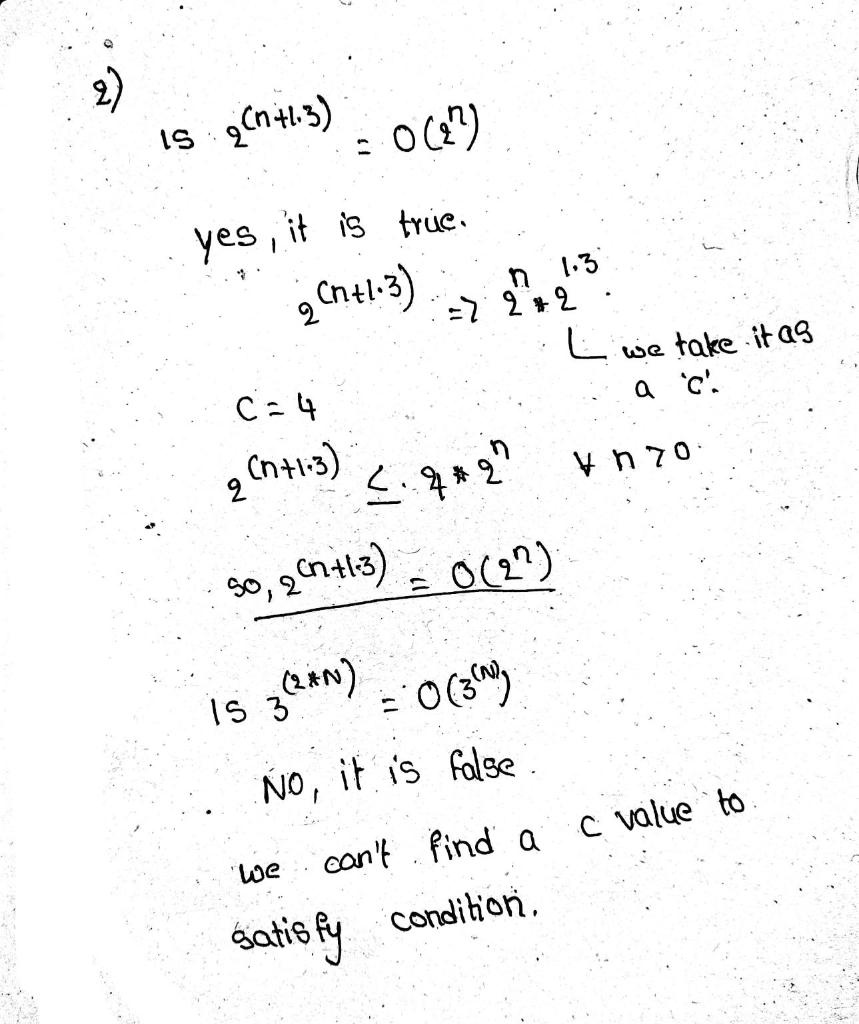 2)
Is 2^(n+1.3) = O(2^n)
yes, it is true.
2^(n+1.3) => 2^n * 2^1.3
we take it as
a 'c'.
C = 4
2^(n+1.3) ≤ 4 * 2^n ∀ n>0
so, 2^(n+1.3) = O(2^n)
Is 3^(2*N) = O(3^(N))
NO, it is false.
we can't find a c value to
satisfy condition.